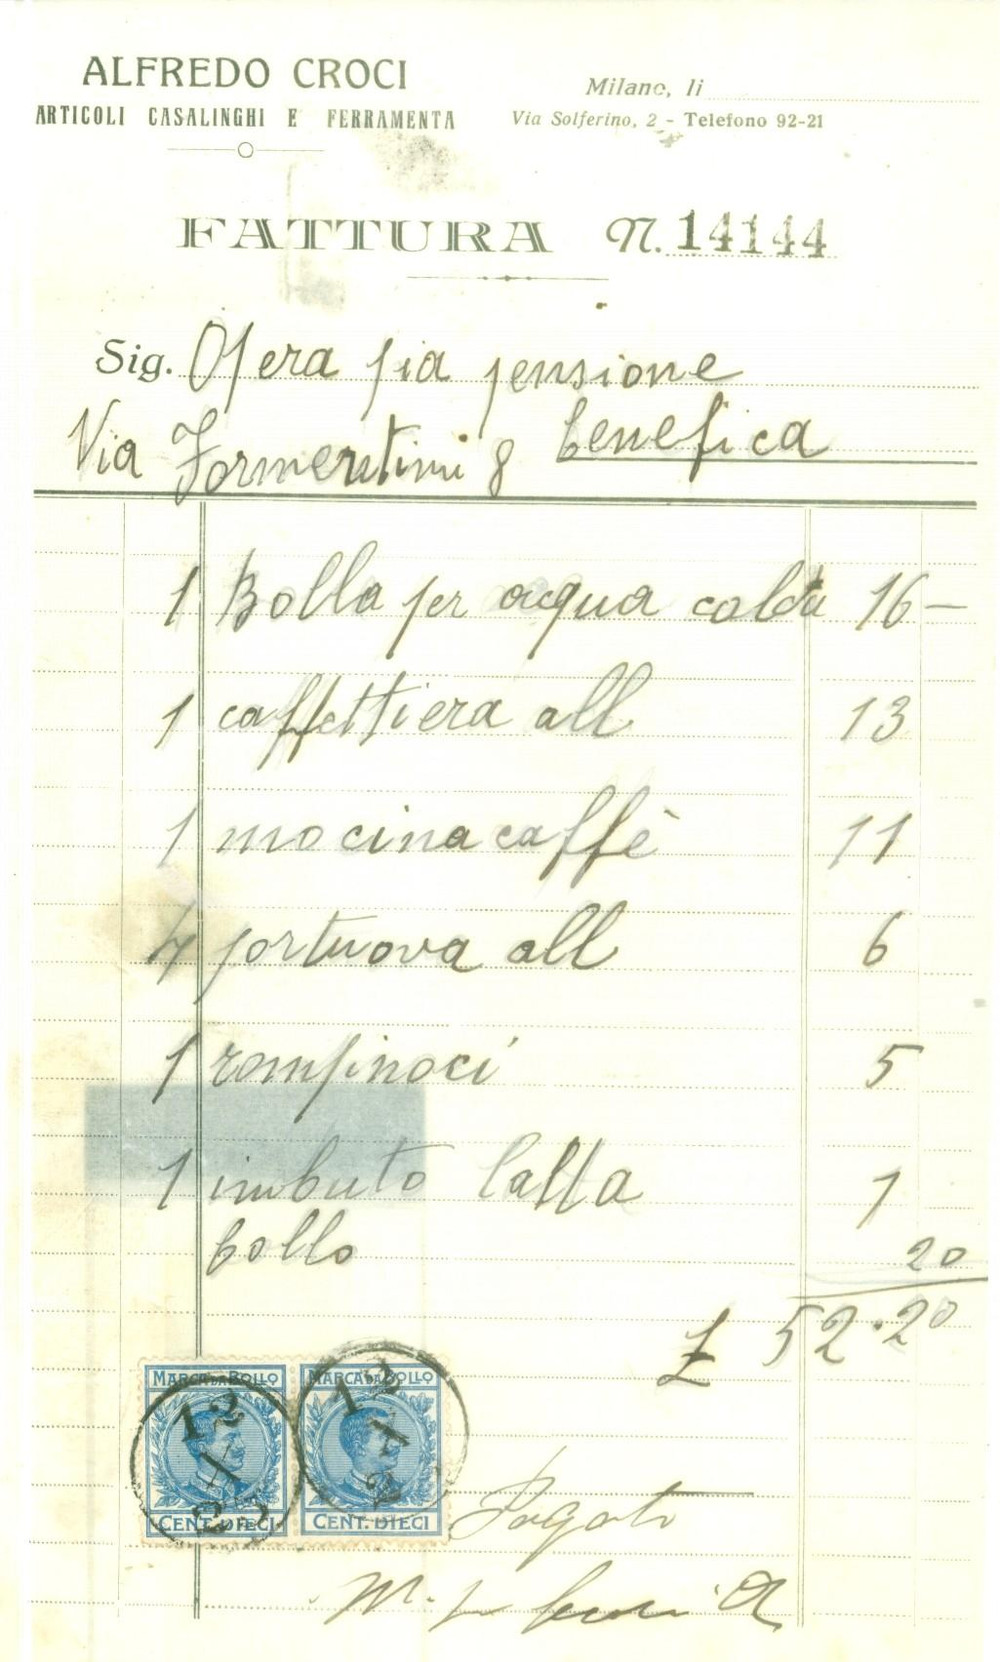 ALFREDO CROCI
ARTICOLI CASALINGHI E FERRAMENTA
Milano, li
Via Solferino, 2 - Telefono 92-21
FATTURA N. 14144
Sig. Opera pia pensione
benefica
Via Formentini 8
1 Bolla per acqua calda 16 —
1 caffettiera all 13
1 macina caffè 11
4 portuova all 6
1 rompinoci 5
1 imbuto latta 1
bollo 20
£ 52.20
MARCA DA BOLLO MARCA DA BOLLO
12 X 12 X
CENT. DIECI CENT. DIECI
Pagato